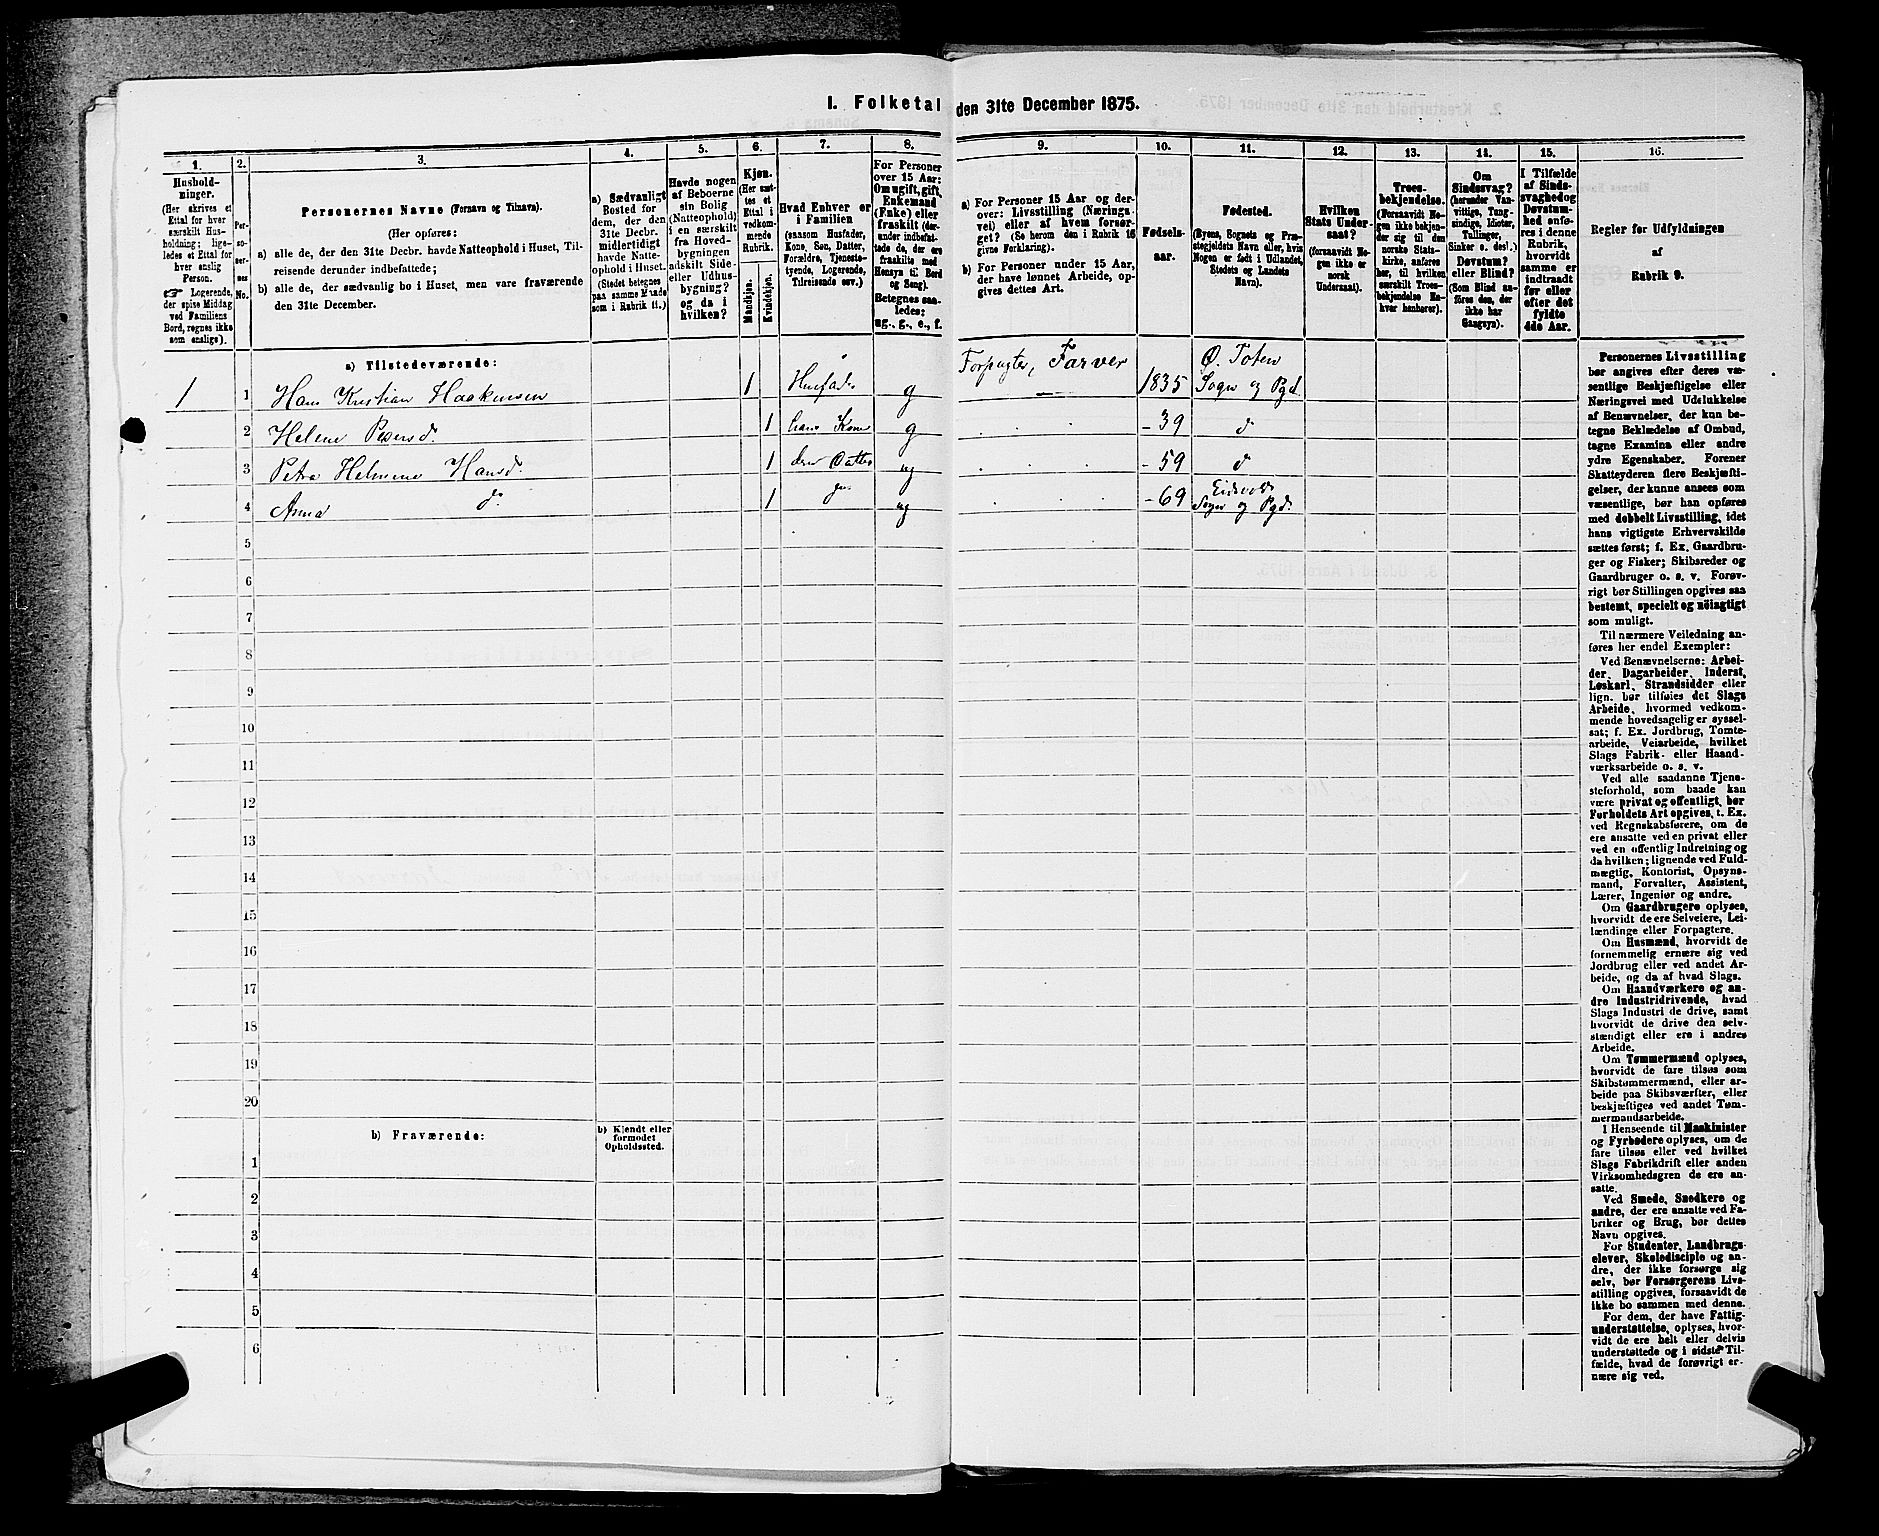 I. Folketal den 31te December 1875.
1. 2. 3. 4. 5. 6. 7. 8. 9. 10. 11. 12. 13. 14. 15. 16.
Hushold-
ninger.
(Her skrives et
Ettal for hver
særskilt Hus-
holdning; lige-
ledes et Ettal for
hver enslig
Person.
☞ Logerende,
der spise Middag
ved Familiens
Bord, regnes ikke
som enslige).
Per-
so-
ner-
nes
No.
Personernes Navne (Fornavn og Tilnavn).
(Her opføres:
a) alle de, der den 31te Decbr. havde Natteophold i Huset, Til-
reisende derunder indbefattede;
b) alle de, der sædvanlig bo i Huset, men vare fraværende
den 31te December.
a) Sædvanligt
Bosted for
dem, der den
31te Decbr.
midlertidigt
havde Natte-
ophold i Huset.
(Stedet betegnes
paa samme Maade
som i Rubrik 11.)
Havde nogen
af Beboerne
sin Bolig
(Natteophold)
i en særskilt
fra Hoved-
bygningen
adskilt Side-
eller Udhus-
bygning?
og da i
hvilken?
Kjøn.
(Her sæt-
tes et
Ettal i
vedkom-
mende
Rubrik.
Mandkjøn.
Kvindekjøn.
Hvad Enhver er
i Familien
(saasom Husfader,
Kone, Søn, Datter,
Forældre, Tjeneste-
tyende, Logerende,
Tilreisende osv.)
For Personer
over 15 Aar:
Om ugift, gift,
Enkemand
(Enke) eller
fraskilt (her-
under indbefat-
tede de, der ere
fraskilte med
Hensyn til Bord
og Seng).
Betegnes saa-
ledes:
ug., g., e., f.
a) For Personer 15 Aar og der-
over: Livsstilling (Nærings-
vei) eller af hvem forsør-
get? (Se herom den i Rubrik 16
givne Forklaring).
b) For Personer under 15 Aar,
der have lønnet Arbeide, op-
gives dettes Art.
Fødsels-
aar.
Fødested.
(Byens, Sognets og Præ-
stegjeldets Navn eller, hvis
Nogen er født i Udlandet,
Stedets og Landets
Navn).
Hvilken
Stats Under-
saat?
(forsaavidt No-
gen ikke er
norsk
Undersaat).
Troes-
bekjendelse.
(Forsaavidt No-
gen ikke bekjen-
der sig til den
norske Stats-
kirke, anføres
her, til hvilken
særskilt Troes-
bekjendelse En-
hver henhører).
Om
Sindssvag?
(herunder Van-
vittige, Tung-
sindige, Idioter,
Tullinger,
Sinker o. desl.)
Døvstum?
eller Blind?
(Som Blind an-
føres den, der
ikke har
Gangsyn).
I Tilfælde
af Sinds-
svaghed og
Døvstum-
hed anfø-
res i denne
Rubrik,
hvorvidt
samme er
indtraadt
før eller
efter det
fyldte
4de Aar.
Regler for Udfyldningen
af
Rubrik 9.
a) Tilstedeværende:
1 1 Hans Kristian Haakensen 1 Husfader g Forpagter, Farver 1835 Ø. Toten Sogn og Pgd
2 Helene Pedersd. 1 hans Kone g - 39 d
3 Petra Helmine Hansd. 1 deres Datter ug - 59 d
4 Anna do 1 do ug - 69 Eidsvold Sogn og Pgd.
5
6
7
8
9
10
11
12
13
14
15
16
17
18
19
20
b) Fraværende:
b) Kjendt eller
formodet
Opholdssted.
1
2
3
4
5
6
Personernes Livsstilling
bør angives efter deres væ-
sentlige Beskjæftigelse eller
Næringsvei med Udelukkelse
af Benævnelser, der kun be-
tegne Beklædelse af Ombud,
tagne Examina eller andre
ydre Egenskaber. Forener
Skatteyderen flere Beskjæfti-
gelser, der kunne ansees som
væsentlige, bør han opføres
med dobbelt Livsstilling, idet
hans vigtigste Erhvervskilde
sættes først; f. Ex. Gaardbru-
ger og Fisker; Skibsreder og
Gaardbruger o. s. v. Forøv-
rigt bør Stillingen opgives saa
bestemt, specielt og nöiagtigt
som muligt.
Til nærmere Veiledning an-
føres her endel Exempler:
Ved Benævnelserne: Arbei-
der, Dagarbeider, Inderst,
Løskarl, Strandsidder eller
lign. bør tilføies det Slags
Arbeide, hvormed vedkom-
mende hovedsagelig er syssel-
sat; f. Ex. Jordbrug, Tomte-
arbeide, Veiarbeide, hvilket
Slags Fabrik- eller Haand-
værksarbeide o. s. v.
Ved alle saadanne Tjene-
steforhold, som baade kan
være privat og offentligt, bør
Forholdets Art opgives, t. Ex.
ved Regnskabsførere, om de
ere ansatte ved en privat eller
ved en offentlig Indretning og
da hvilken; lignende ved Fuld-
mægtig, Kontorist, Opsyns-
mand, Forvalter, Assistent,
Lærer, Ingeniør og andre.
Om Gaardbrugere oplyses,
hvorvidt de ere Selveiere, Lei-
lændinge eller Forpagtere.
Om Husmænd, hvorvidt de
fornemmelig ernære sig ved
Jordbrug eller ved andet Ar-
beide, og da af hvad Slags.
Om Haandværkere og an-
dre Industridrivende, hvad
Slags Industri de drive, samt
hvorvidt de drive den selv-
stændigt eller ere i andres
Arbeide.
Om Tømmermænd oplyses,
hvorvidt de fare tilsøs som
Skibstømmermænd, eller ar-
beide paa Skibsværfter, eller
beskjæftiges ved andet Tøm-
mermandsarbeide.
I Henseende til Maskinister
og Fyrbødere oplyses, om de
fare tilsøs eller ved hvilket
Slags Fabrikdrift eller anden
Virksomhedsgren de ere an-
satte.
Ved Smede, Snedkere og
andre, der ere ansatte ved Fa-
briker og Brug, bør dettes
Navn opgives.
For Studenter, Landbrugs-
elever, Skoledisciple og an-
dre, der ikke forsørge sig
selv, bør Forsørgerens Livs-
stilling opgives, forsaavidt de
ikke bo sammen med denne.
For dem, der have Fattig-
understøttelse, oplyses, hvor-
vidt de ere helt eller delvis
understøttede og i sidste Til-
fælde, hvad de forøvrigt er-
nære sig ved.